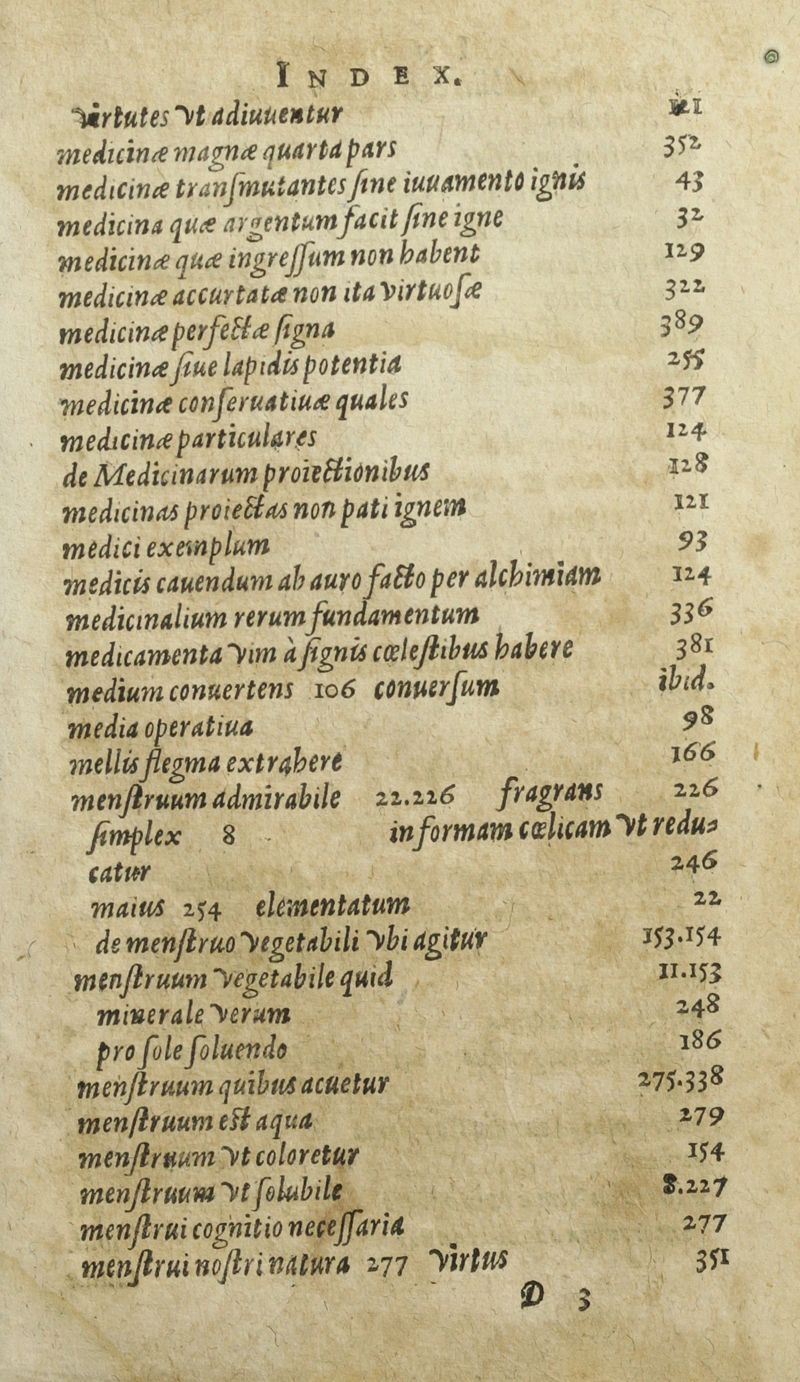 INDEX.
virtutes vt adiuuentur
medicinæ magnæ quarta pars 352
medicinæ tranſmutantes ſine iuuamento ignis 43
medicina quæ argentum facit ſine igne 32
medicinæ quæ ingreſſum non habent 129
medicinæ accurtatæ non ita virtuoſæ 322
medicinæ perfectæ ſigna 389
medicinæ ſiue lapidis potentia 255
medicinæ conſeruatiuæ quales 377
medicinæ particulares 124
de Medicinarum proiectionibus 128
medicinas proiectas non pati ignem 121
medici exemplum 93
medicis cauendum ab auro facto per alchimiam 124
medicinalium rerum fundamentum 336
medicamenta vim à ſignis cœleſtibus habere 381
medium conuertens 106 conuerſum ibid.
media operatiua 98
mellis flegma extrahere 166
menſtruum admirabile 22.226 fragrans 226
ſimplex 8 in formam cœlicam vt redu⸗
catur 246
maius 254 elementatum 22
de menſtruo vegetabili vbi agitur 153.154
menſtruum vegetabile quid 11.153
minerale verum 248
pro ſole ſoluendo 186
menſtruum quibus acuetur 275.338
menſtruum est aqua 279
menſtruum vt coloretur 154
menſtruum vt ſolubile 8.227
menſtrui cognitio neceſſaria 277
menſtrui noſtri natura 277 virtus 351
D 3